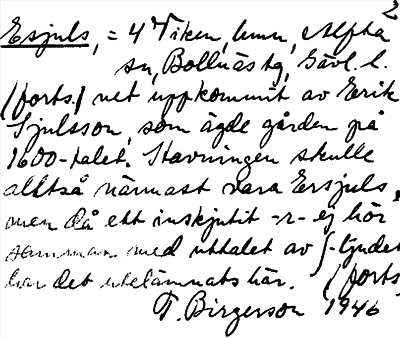 2
Esjuls, = 4 Viken, hmn, Alfta
sn, Bollnäs tg, Gävl. l.
(forts.) net uppkommit av Erik
Sjulsson, som ägde gården på
1600-talet. Stavningen skulle
alltså närmast vara Ersjuls,
men då ett inskjutit -r- ej hör
samman med uttalet av ʃ-ljudet
har det utelämnats här. (forts.
T. Birgerson 1946